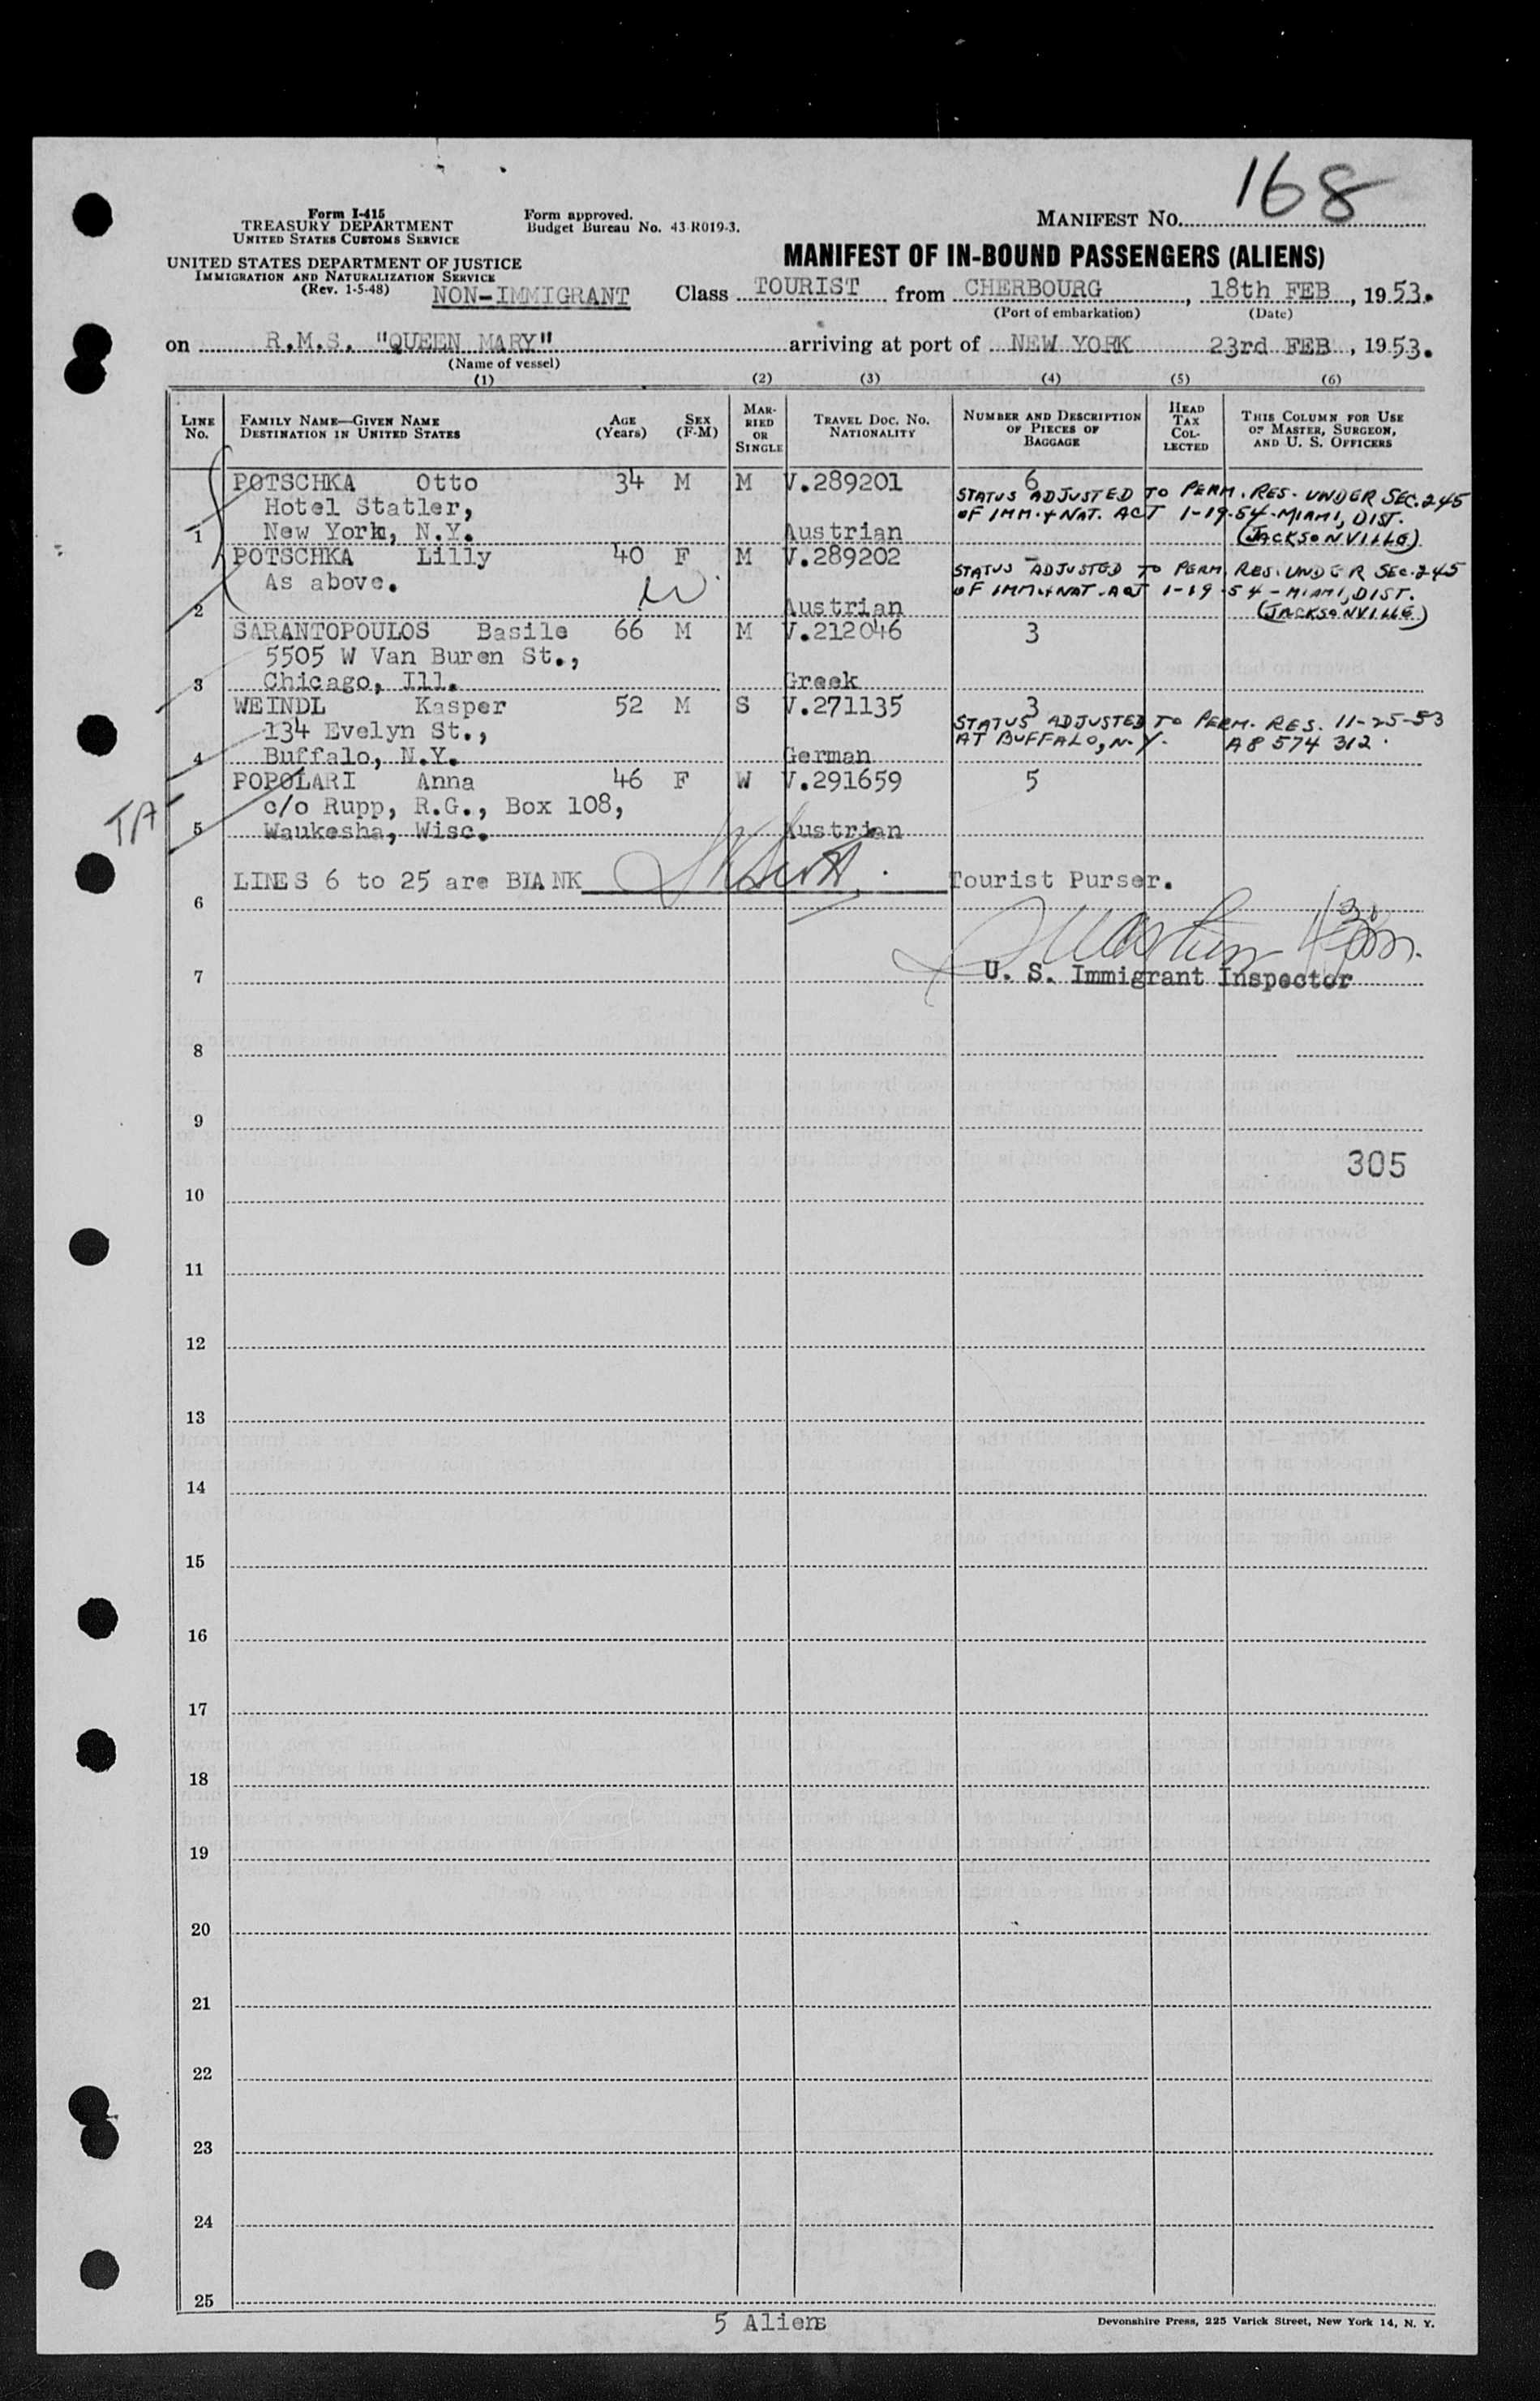 168
Form I-415
TREASURY DEPARTMENT
UNITED STATES CUSTOMS SERVICE
Form approved.
Budget Bureau No. 43-R019-3.
MANIFEST NO.
UNITED STATES DEPARTMENT OF JUSTICE
IMMIGRATION AND NATURALIZATION SERVICE
(Rev. 1-5-48)
MANIFEST OF IN-BOUND PASSENGERS (ALIENS)
NON-IMMIGRANT Class TOURIST from CHERBOURG, 18th FEB, 1953.
(Port of embarkation) (Date)
on R.M.S. "QUEEN MARY" arriving at port of NEW YORK 23rd FEB, 1953.
(Name of vessel)
(1) (2) (3) (4) (5) (6)
LINE No. FAMILY NAME—GIVEN NAME DESTINATION IN UNITED STATES AGE (Years) SEX (F-M) MARRIED OR SINGLE TRAVEL DOC. NO. NATIONALITY NUMBER AND DESCRIPTION OF PIECES OF BAGGAGE HEAD TAX COLLECTED THIS COLUMN FOR USE OF MASTER, SURGEON, AND U. S. OFFICERS
POTSCHKA Otto 34 M M V.289201 6
Hotel Statler, STATUS ADJUSTED TO PERM. RES. UNDER SEC. 245
OF IMM. + NAT. ACT 1-19-54-MIAMI, DIST.
1 New York, N.Y. Austrian (JACKSONVILLE)
POTSCHKA Lilly 40 F M V.289202 -
As above. W. STATUS ADJUSTED TO PERM. RES. UNDER SEC. 245
OF IMM. + NAT. ACT 1-19-54-MIAMI, DIST.
2 Austrian (JACKSONVILLE)
SARANTOPOULOS Basile 66 M M V.212046 3
5505 W Van Buren St.,
3 Chicago, Ill. Greek
WEINDL Kasper 52 M S V.271135 3
134 Evelyn St., STATUS ADJUSTED TO PERM. RES. 11-25-53
AT BUFFALO, N.Y. A8 574 312.
4 Buffalo, N.Y. German
POPOLARI Anna 46 F W V.291659 5
c/o Rupp, R.G., Box 108,
TA 5 Waukesha, Wisc. Austrian
LINES 6 to 25 are BLANK Tourist Purser.
6
U. S. Immigrant Inspector
7
8
9
305
10
11
12
13
14
15
16
17
18
19
20
21
22
23
24
25
5 Aliens
Devonshire Press, 225 Varick Street, New York 14, N. Y.